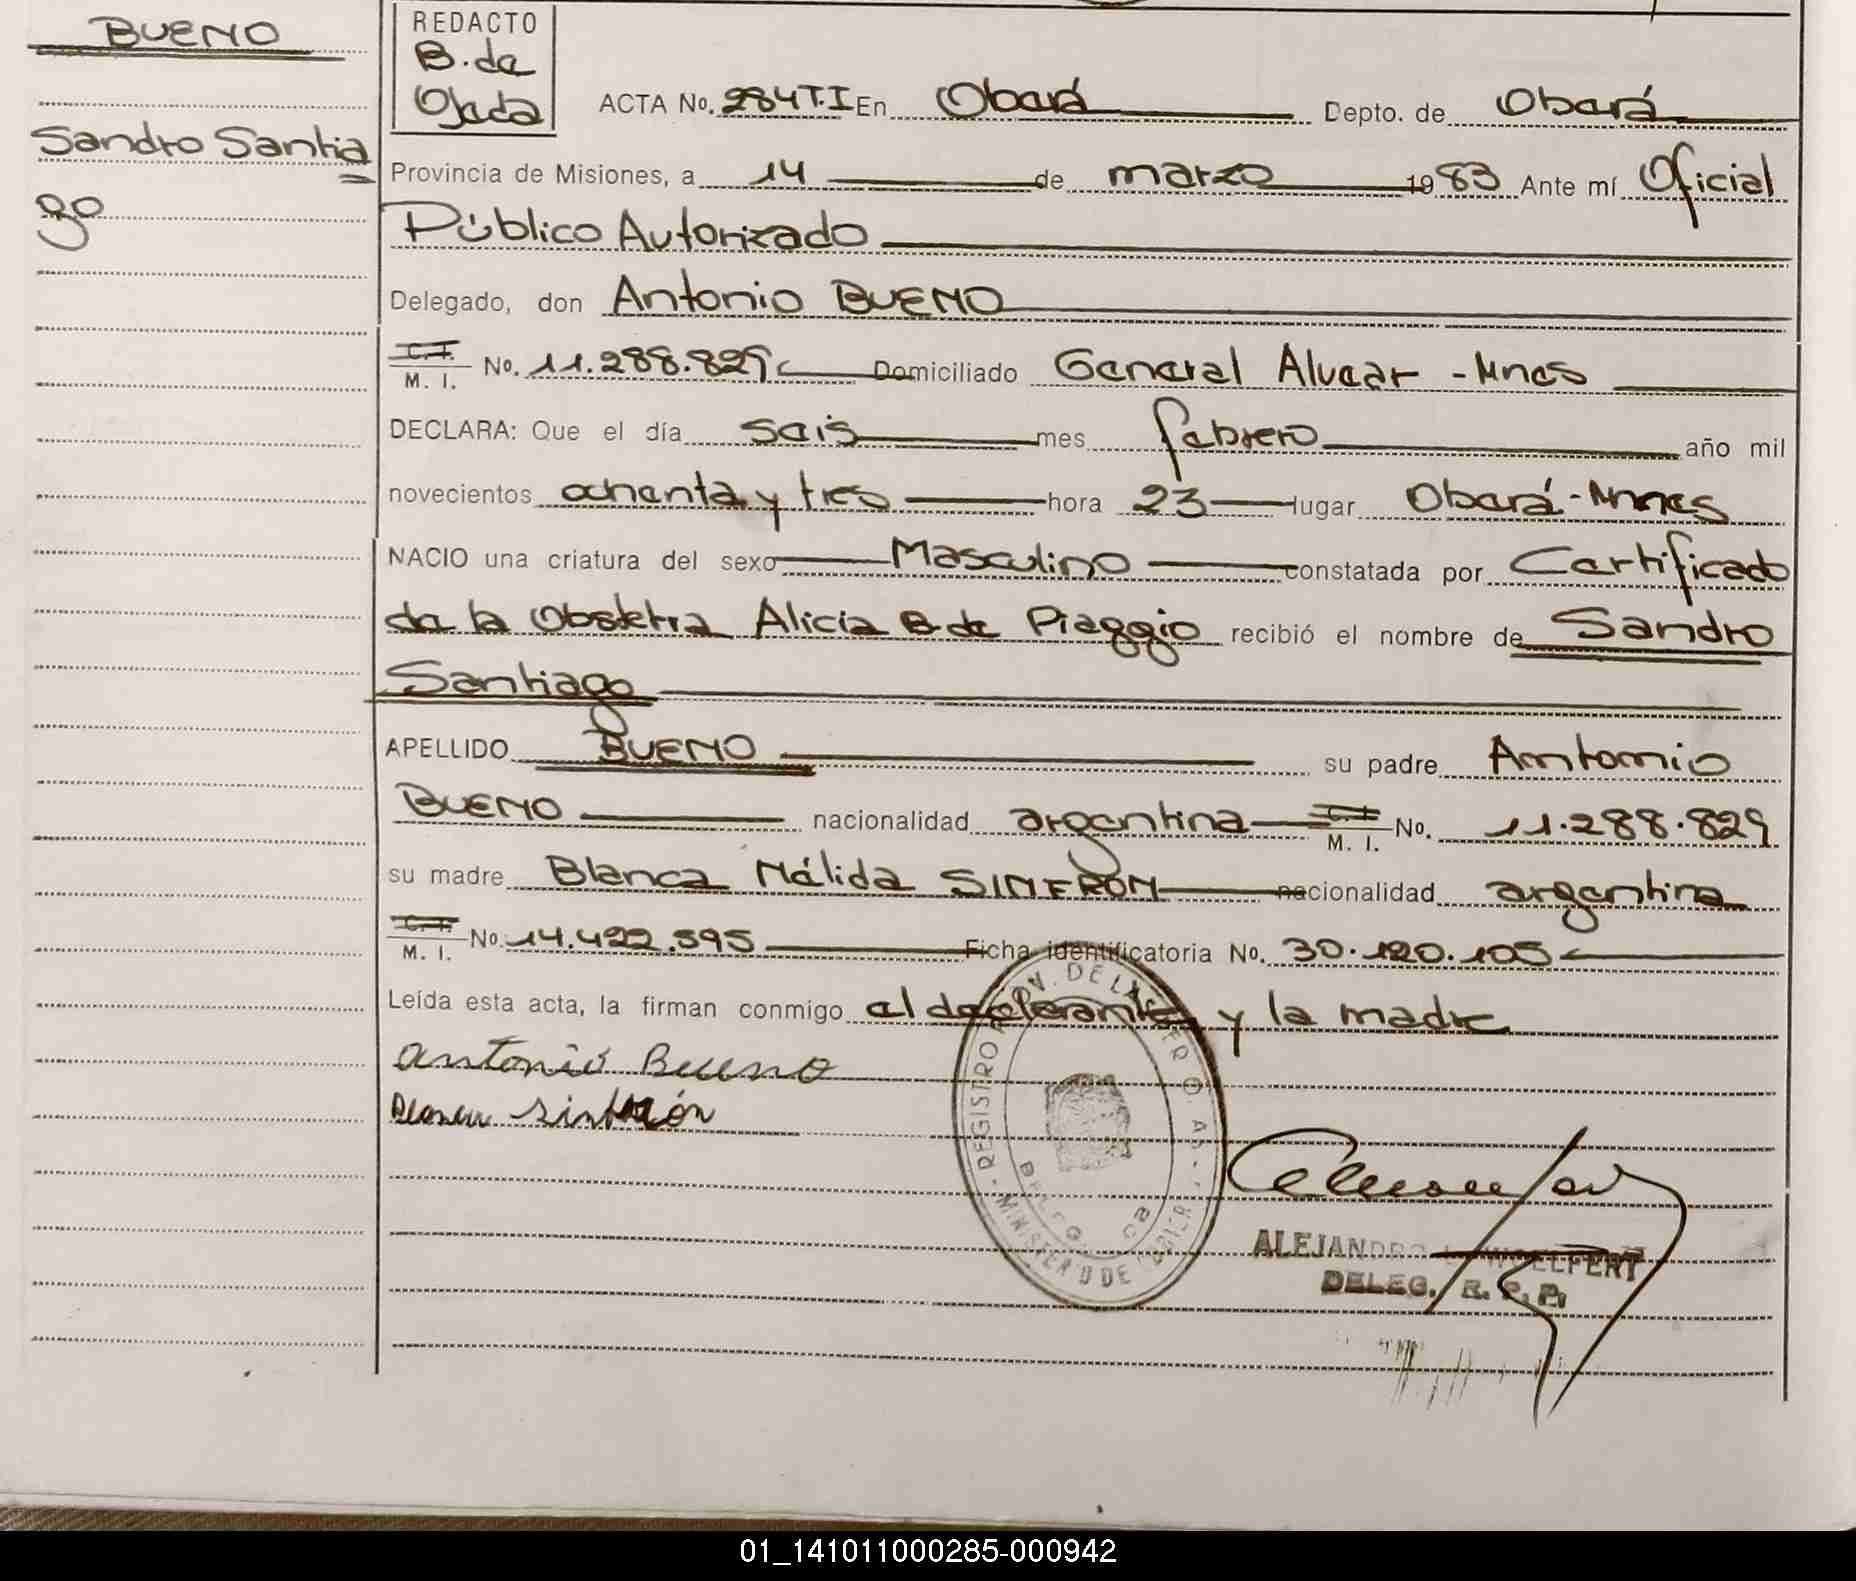 BUENO
Sandro Santia
go
REDACTO
B. de
Ojeda
ACTA No. 284 T.I En Oberá Depto. de Oberá
Provincia de Misiones, a 14 de marzo 1983 Ante mí Oficial
Público Autorizado
Delegado, don Antonio BUENO
C.I. M. I. No. 11.288.829 Domiciliado General Alvear - Mnes
DECLARA: Que el día seis mes febrero año mil
novecientos ochenta y tres hora 23 lugar Oberá - Mnes
NACIO una criatura del sexo Masculino constatada por Certificado
de la Obstetra Alicia B de Piaggio recibió el nombre de Sandro
Santiago
APELLIDO BUENO su padre Antonio
BUENO nacionalidad argentina C.I. M. I. No. 11.288.829
su madre Blanca Nélida SINFRON nacionalidad argentina
C.I. M. I. No. 14.422.595 Ficha identificatoria No. 30.120.105
Leída esta acta, la firman conmigo el declarante y la madre
Antonio Bueno
REGISTRO PROV. DE LAS
MINISTERIO DE
ALEJANDRO WOELFERT
DELEG. R. P. P.
01_141011000285-000942